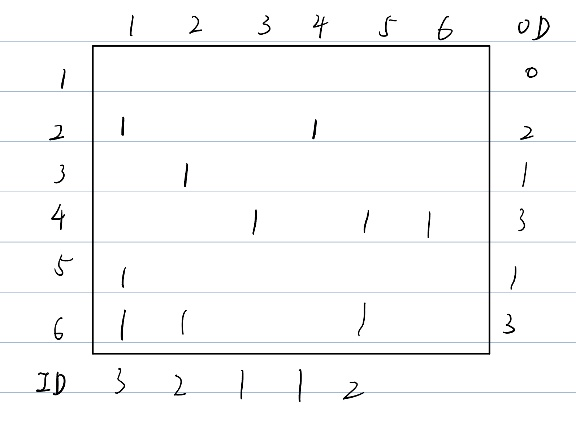 1 2 3 4 5 6 OD
1 0
2 1 1 2
3 1 1
4 1 1 1 3
5 1 1
6 1 1 1 3
ID 3 2 1 1 2